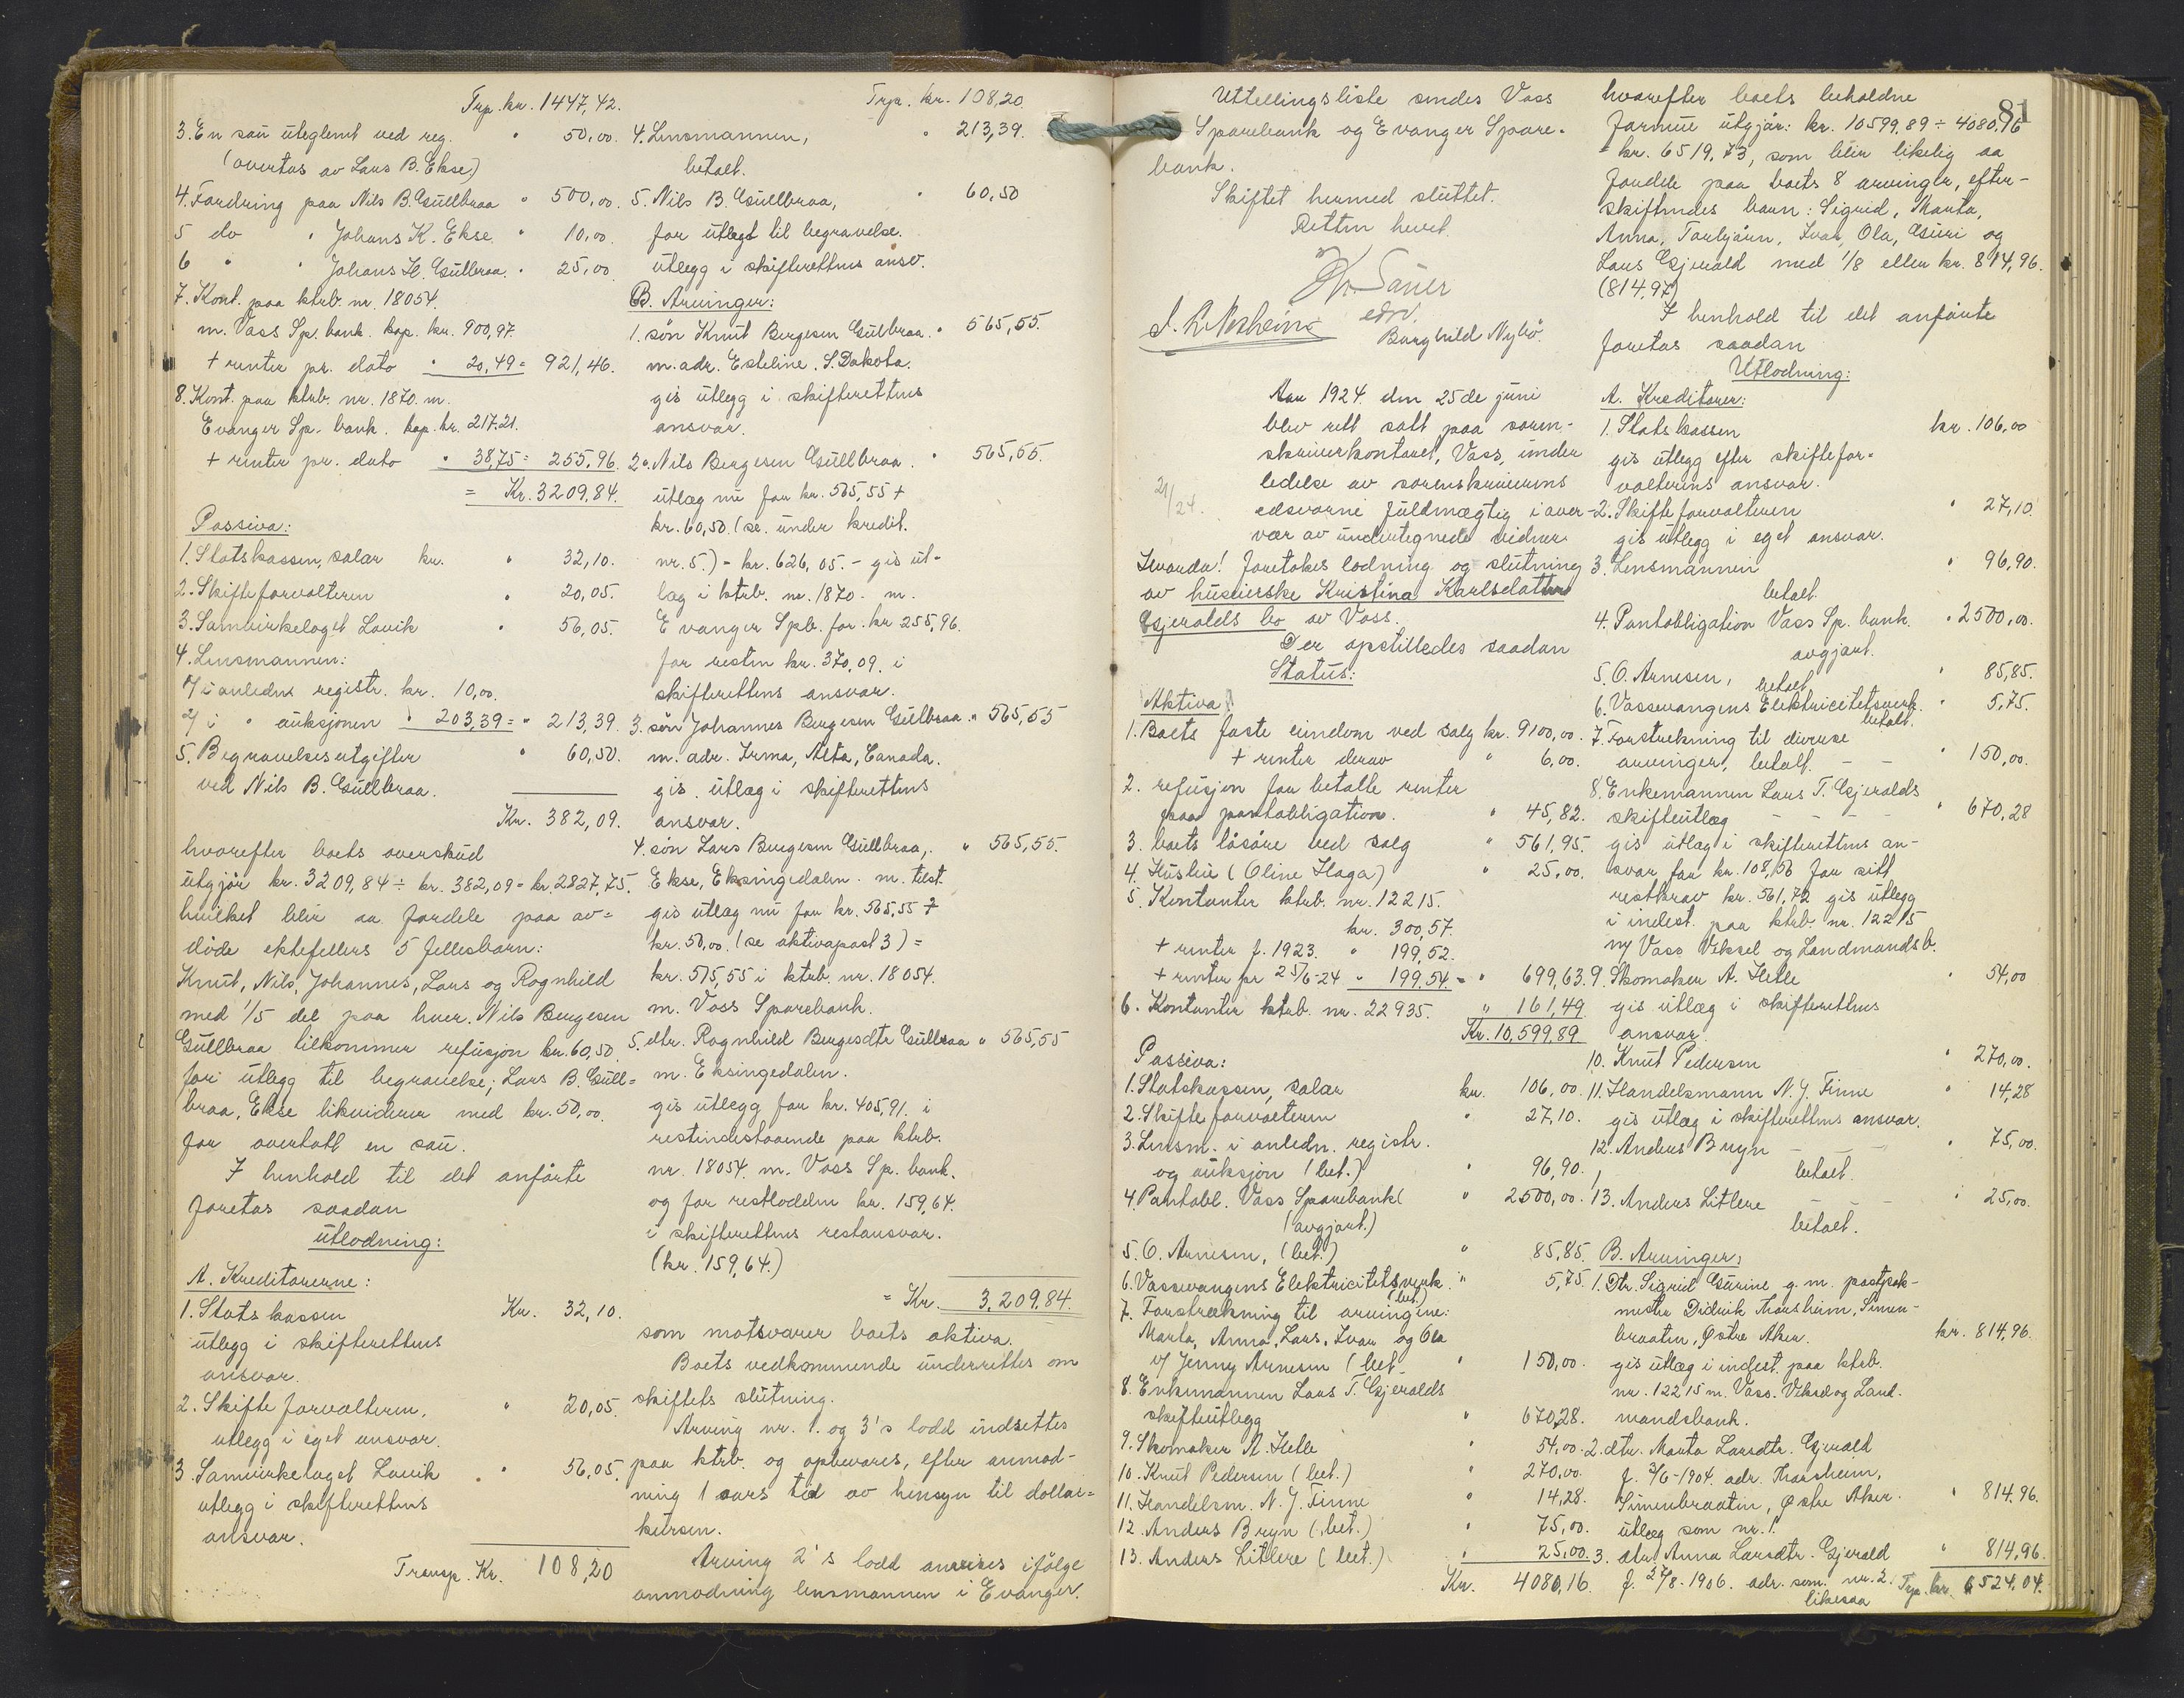 Trp. kr. 1447,42.
3. En sau uteglemt ved reg. " 50,00.
(overtas av Lars B. Ekse)
4. Fordring paa Nils B. Gullbraa " 500,00.
5 do " Johans K. Ekse " 10,00.
6 " " Johans H. Gullbraa. " 25,00
7. Kont. paa ktrb. nr. 18054.
m. Voss Sp. bank. kap. kr. 900,97.
+ renter pr. dato " 20,49 = 921,46.
8. Kont. paa ktrb. nr. 1870. m.
Evanger Sp. bank. kap. kr. 217.21.
+ renter pr. dato " 38,75 = 255,96.
= Kr. 3209,84.
Passiva:
1. Statskassen, salær kr. " 32,10.
2. Skifteforvalteren " 20,05.
3. Samvirkelaget Lavik " 56,05.
4. Lensmannen:
1/ i anledn registr. kr. 10,00.
2/ i " auksjonen " 203,39 = " 213,39.
5. Begravelsesutgifter " 60,50.
ved Nils B. Gullbraa.
Kr. 382,09.
hvorefter boets overskud
utgjør kr. 3209,84 ÷ kr. 382,09 = kr. 2827,75.
hvilket blir aa fordele paa av=
døde ektefellers 5 fellesbarn:
Knut, Nils, Johannes, Lars og Ragnhild
med 1/5 del paa hver. Nils Bergesen
Gullbraa tilkommer refusjon kr. 60,50
for utlegg til begravelse; Lars B. Gull=
braa, Ekse likviderer med kr. 50,00.
for overtatt en sau.
I henhold til det anførte
foretas saadan
utlodning:
A. Kreditorerne:
1. Statskassen Kr. 32,10.
utlegg i skifterettens
ansvar.
2. Skifteforvalteren, " 20,05.
utlegg i eget ansvar.
3. Samvirkelaget Lavik " 56,05.
utlegg i skifterettens
ansvar.
Transp. Kr. 108,20
Trp. kr. 108,20
4. Lensmannen, " 213,39.
betalt.
5. Nils B. Gullbraa, " 60,50
for utlegt til begravelse.
utlegg i skifterettens ansv.
B. Arvinger:
1. søn Knut Bergesen Gullbraa. " 565,55.
m. adr. Esteline. S. Dakota.
gis utlegg i skifterettens
ansvar.
2. Nils Bergesen Gullbraa. " 565,55.
utlæg nu for kr. 565,55 +
kr. 60,50. (se under kredit.
nr. 5.) = kr. 626,05. - gis ut-
læg i ktrb. nr. 1870. m.
Evanger Spb. for kr 255,96.
for resten kr. 370,09. i
skifterettens ansvar.
3. søn Johannes Bergesen Gullbraa " 565,55
m. adr. Irma, Alta, Canada.
gis utlæg i skifterettens
ansvar.
4. søn Lars Bergesen Gullbraa, " 565,55.
Ekse, Eksingedalen. m. tilst.
gis utlæg nu for kr. 565,55 ÷
kr. 50,00. (se aktivapost 3) =
kr. 515,55 i ktrb. nr. 18054.
m. Voss Sparebank.
5. dtr. Ragnhild Bergesdtr Gullbraa " 565,55
m. Eksingedalen.
gis utlegg for kr. 405,91. i
restindestaaende paa ktrb.
nr. 18054. m. Voss Sp. bank.
og for restlodden kr. 159,64.
i skifterettens restansvar.
(kr. 159,64.)
= Kr. 3.209.84.
som motsvarer boets aktiva.
Boets vedkommende underrettes om
skiftets slutning.
Arving nr. 1. og 3's lodd indsettes
paa ktrb. og opbevares, efter anmod-
ning 1 aars tid av hensyn til dollar=
kursen.
Arving 2's lodd anvises ifølge
anmodning lensmannen i Evanger.
81
Uttellingsliste sendes Voss
Sparebank og Evanger Spare-
bank.
Skiftet hermed sluttet.
Retten hevet.
edsv.
Borghild Nybø.
Aar 1924. den 25de juni
blev rett satt paa soren-
skriverkontoret, Voss, under
ledelse av sorenskriverens
edsvorne fuldmægtig i over-
vær av undertegnede vidner.
21/24.
Hvorda! Foretokes lodning og slutning
av husmorske Kristina Karlsdatter
Gjeralds bo av Voss.
Der opstilledes saadan
Status:
Aktiva
1. Boets faste eiendom ved salg kr. 9100,00.
+ renter derav " 6,00.
2. refusjon for betalte renter
paa pantobligation. " 45,82.
3. boets løsøre ved salg " 561,95.
4. Husleie (Oline Haga) " 25,00.
5. Kontanter ktrb. nr. 12215.
kr. 300,57.
+ renter f. 1923. " 199,52.
+ renter pr 25/6-24 " 199,54. = " 699,63
6. Kontanter ktrb. nr. 22935. " 161,49
Kr. 10,599,89
Passiva:
1. Statskassen, salær kr. 106,00.
2. Skifteforvalteren " 27,10.
3. Lensm. i anledn. registr.
og auksjon (bet.) " 96,90.
4. Pantobl. Voss Sparebank( " 2500,00.
(avgjort.)
5. O. Arnesen, (bet.) " 85,85.
6. Vossevangens Elektricitetsverk. " 5,75
(bet.)
7. Forstrækning til arvingene:
Marta, Anna, Lars, Ivar og Ola
v/ Jenny Arnesen (bet " 150,00.
8. Enkemannen Lars T. Gjeralds
skifteutlegg " 670,28.
9. Skomaker A. Helle " 54,00.
10. Knut Pedersen (bet.) " 270,00.
11. Handelsm. N. J. Finne " 14,28.
12. Anders Bryn (bet.) " 75,00.
13. Anders Litlere (bet.) " 25,00.
Kr. 4080,16.
hvorefter boets beholdne
formue utgjør: kr. 10599,89 ÷ 4080,16
= kr. 6519,73, som blir likelig aa
fordele paa boets 8 arvinger, efter-
skiftendes barn: Sigrid, Marta,
Anna, Torbjørn, Ivar, Ola, Guri og
Lars Gjerald med 1/8 eller kr. 814,96.
(814,97)
I henhold til det anførte
foretas saadan
Utlodning:
A. Kreditorer:
1. Statskassen kr. 106,00
gis utlegg efter skiftefor-
valterens ansvar.
2. Skifteforvalteren " 27,10
gis utlegg i eget ansvar.
3. Lensmannen " 96,90.
betalt
4. Pantobligation Voss Sp. bank. " 2500,00.
avgjort.
5. O. Arnesen, betalt " 85,85.
6. Vossevangens Elektricitetsverk. " 5,75.
betalt.
7. Forstrekning til diverse
arvinger, betalt. - - " 150,00.
8. Enkemannen Lars T. Gjeralds
skifteutlæg - - - - " 670,28
gis utlæg i skifterettens an-
svar for kr. 108,56 for sitt
restkrav kr. 561,72 gis utlegg
i indest. paa ktrb. nr. 12215
m/ Voss Veksel og Landmandsb.
9. Skomaker A. Helle " 54,00
gis utlæg i skifterettens
ansvar.
10. Knut Pedersen " 270,00.
11. Handelsmann N. J. Finne " 14,28
gis utlæg i skifterettens ansvar.
12. Anders Bryn - - " 75,00.
betalt.
13. Anders Litlere - - - " 25,00.
betalt.
B. Arvinger,
1. Dtr. Sigrid Gurine, g. m. postpak-
mester Didrik Thorsheim, Simen-
braaten, Østre Aker. kr. 814,96.
gis utlæg i indest. paa ktrb.
nr. 12215 m. Voss. Veksel og Land-
mandsbank.
2. dtr. Marta Larsdtr. Gjerald
f. 3/6-1904. adr. Thorsheim,
Simenbraaten, Østre Aker. " 814.96.
utlæg som nr. 1.
3. dtr Anna Larsdtr. Gjerald " 814,96.
f. 27/8-1906. adr. som nr. 2. Trp. kr. 6524,04.
likesaa